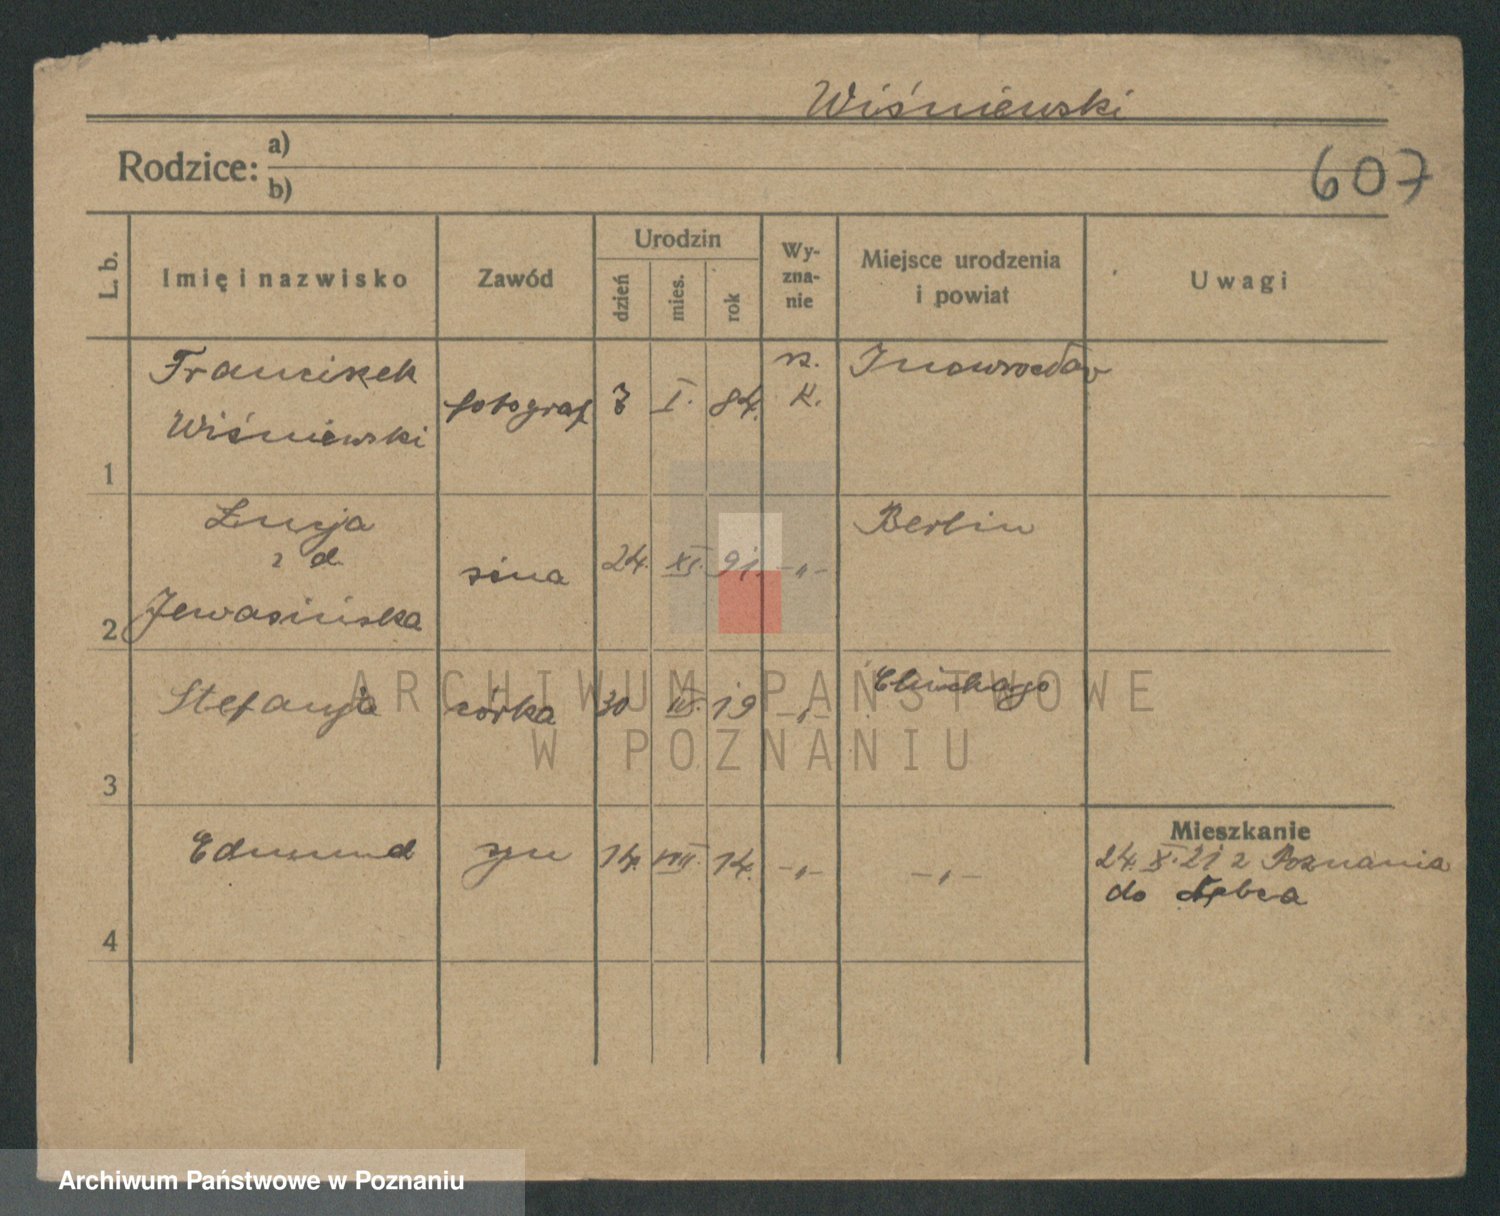 Wiśniewski
Rodzice: a)
b)
607
L. b.
Imię i nazwisko
Zawód
Urodzin
dzień
mies.
rok
Wy-
zna-
nie
Miejsce urodzenia
i powiat
Uwagi
1
Franciszek
Wiśniewski
fotograf
I.
84.
rz.
K.
Inowrocław
2
Łucja
z d.
żona
24.
XI.
91.
-„-
Berlin
3
Stefanja
córka
30
19
-„-
Chichago
4
Edmund
syn
14.
VIII.
14.
-„-
-„-
Mieszkanie
24. X. 21 z Poznania
do
ARCHIWUM PAŃSTWOWE
W POZNANIU
Archiwum Państwowe w Poznaniu